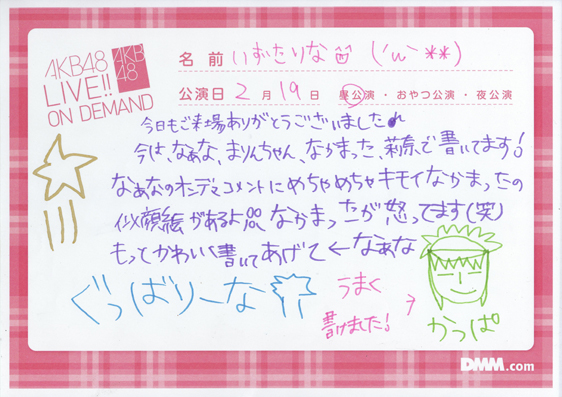 AKB48
LIVE!!
ON DEMAND
AKB
48
名前 いずたりな (´ω｀**)
公演日 2月19日 昼公演・おやつ公演・夜公演
今日もご来場ありがとうございました♪
今は、なぁな、まりんちゃん、なかまった、莉奈で書いてます!
なぁなのオンデマコメントにめちゃめちゃキモイなかまったの
似顔絵があるよ なかまったが怒ってます(笑)
もっとかわいく書いてあげて←なぁな
ぐっばりーな
うまく
書けました!
かっぱ
DMM.com